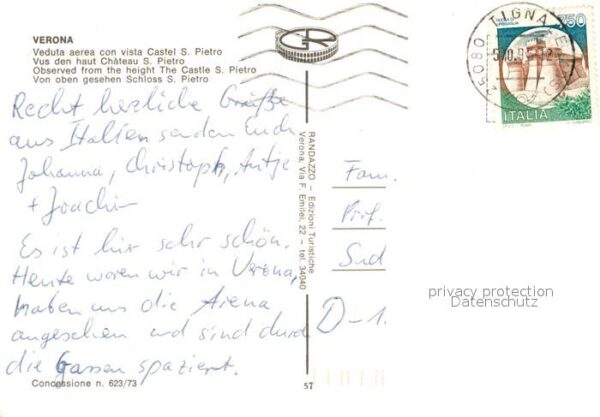 VERONA
Veduta aerea con vista Castel S. Pietro
Vus den haut Château S. Pietro
Observed from the height The Castle S. Pietro
Von oben gesehen Schloss S. Pietro
Recht herzliche Grüße
aus Italien senden Euch
Johanna, Christoph, Antje
+ Joachim
Es ist hier sehr schön.
Heute waren wir in Verona,
haben uns die Arena
angesehen und sind durch
die Gassen spaziert.
Concessione n. 623/73
RANDAZZO - Edizioni Turistiche
Verona, Via F. Emilei, 22 - tel. 34040
57
750
ITALIA
25080 TIGNALE
Fam.
Prof.
Sud
D-1.
privacy protection
Datenschutz